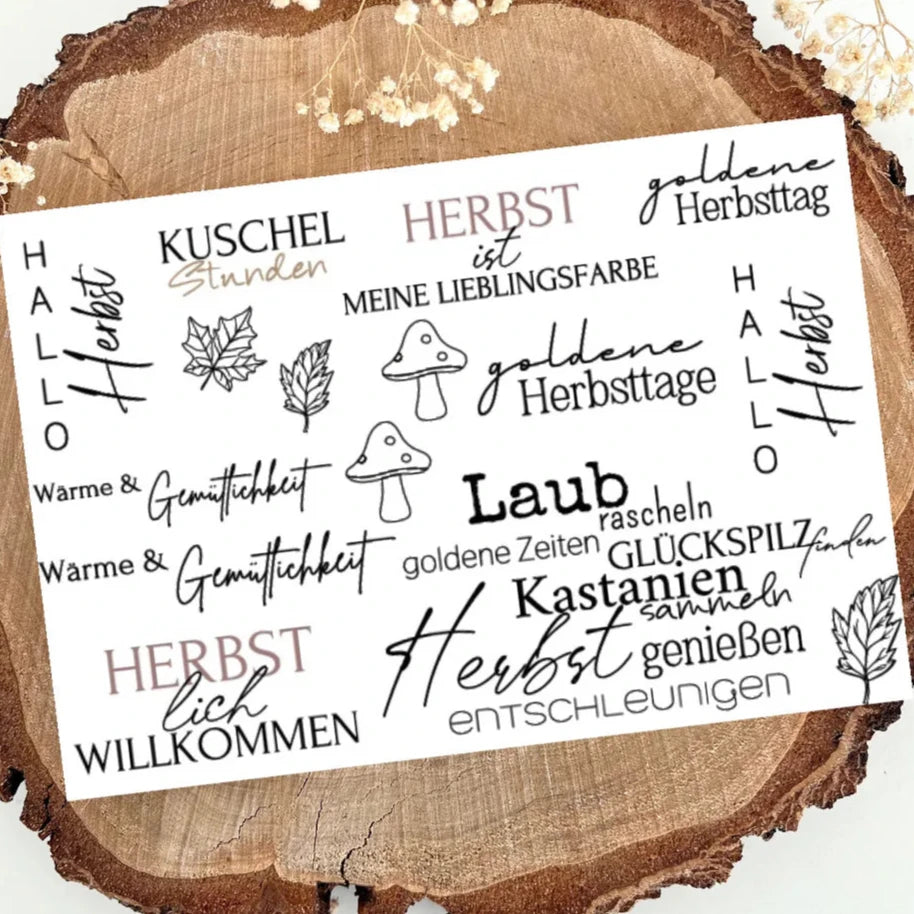 HALLO
Herbst
KUSCHEL
Stunden
HERBST
ist
MEINE LIEBLINGSFARBE
goldene
Herbsttag
goldene
Herbsttage
HALLO
Herbst
Wärme & Gemütlichkeit
Wärme & Gemütlichkeit
HERBST
lich
WILLKOMMEN
Laub
rascheln
goldene Zeiten
GLÜCKSPILZ finden
Kastanien
sammeln
Herbst genießen
entschleunigen